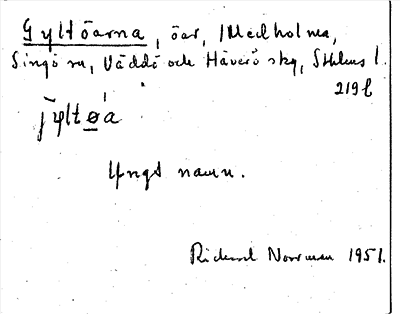 Gyltöarna, öar, /Medholma,
Singö sn, Väddö och Häverö skg, Sthlms l.
219 b
jyltøa
Yngt namn.
Rickard Norrman 1951.